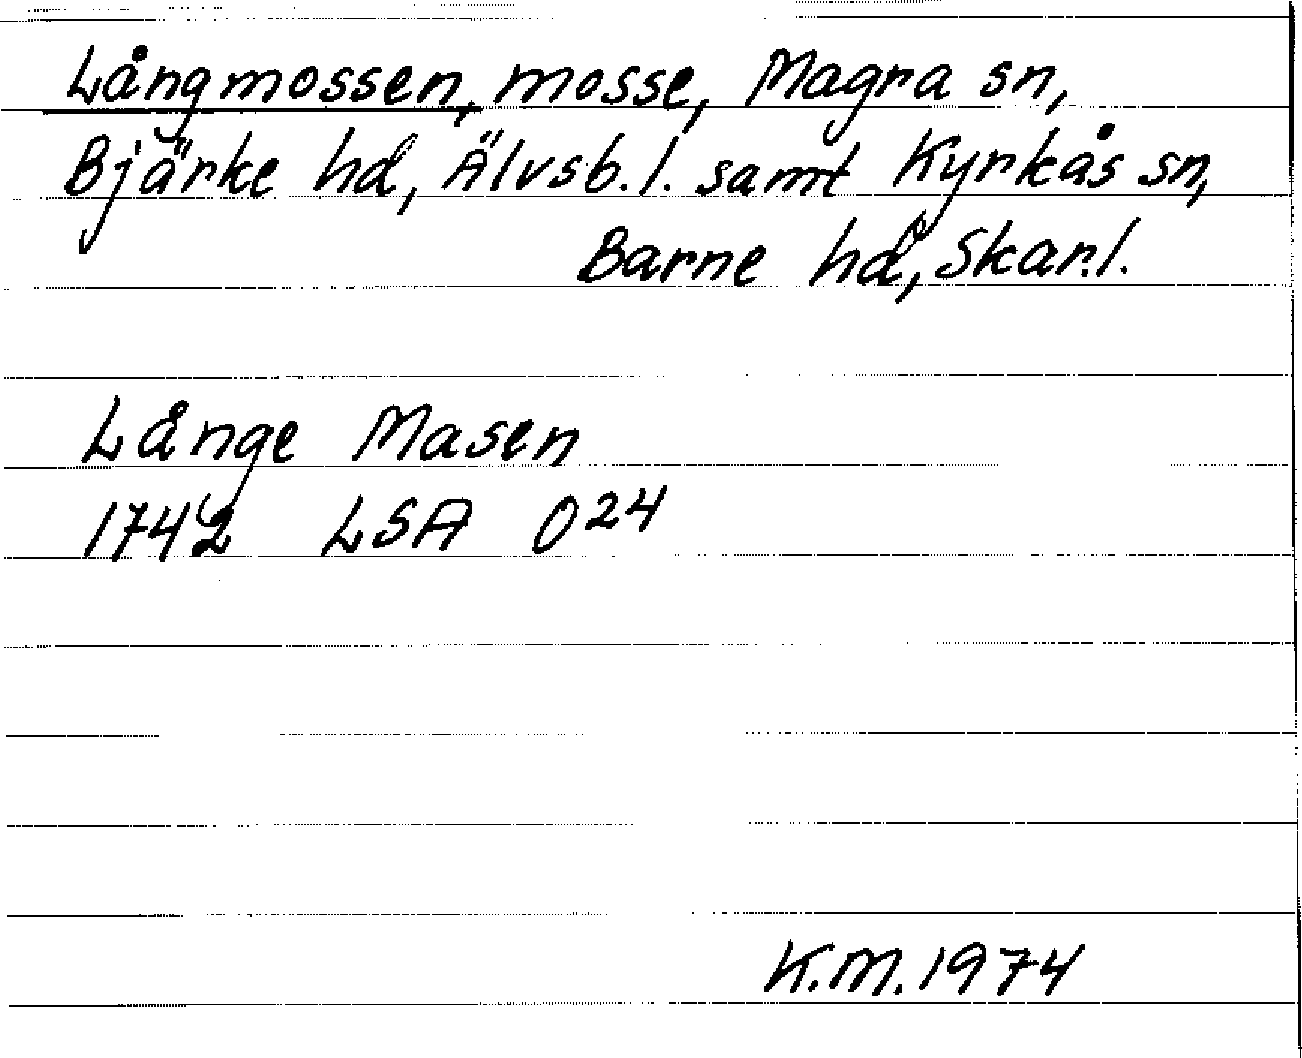 Långmossen, mosse, Magra sn,
Bjärke hd, Älvsb. l. samt Kyrkås sn,
Barne hd, Skar. l.
Långe Masen
1742 LSA O24
K.M. 1974